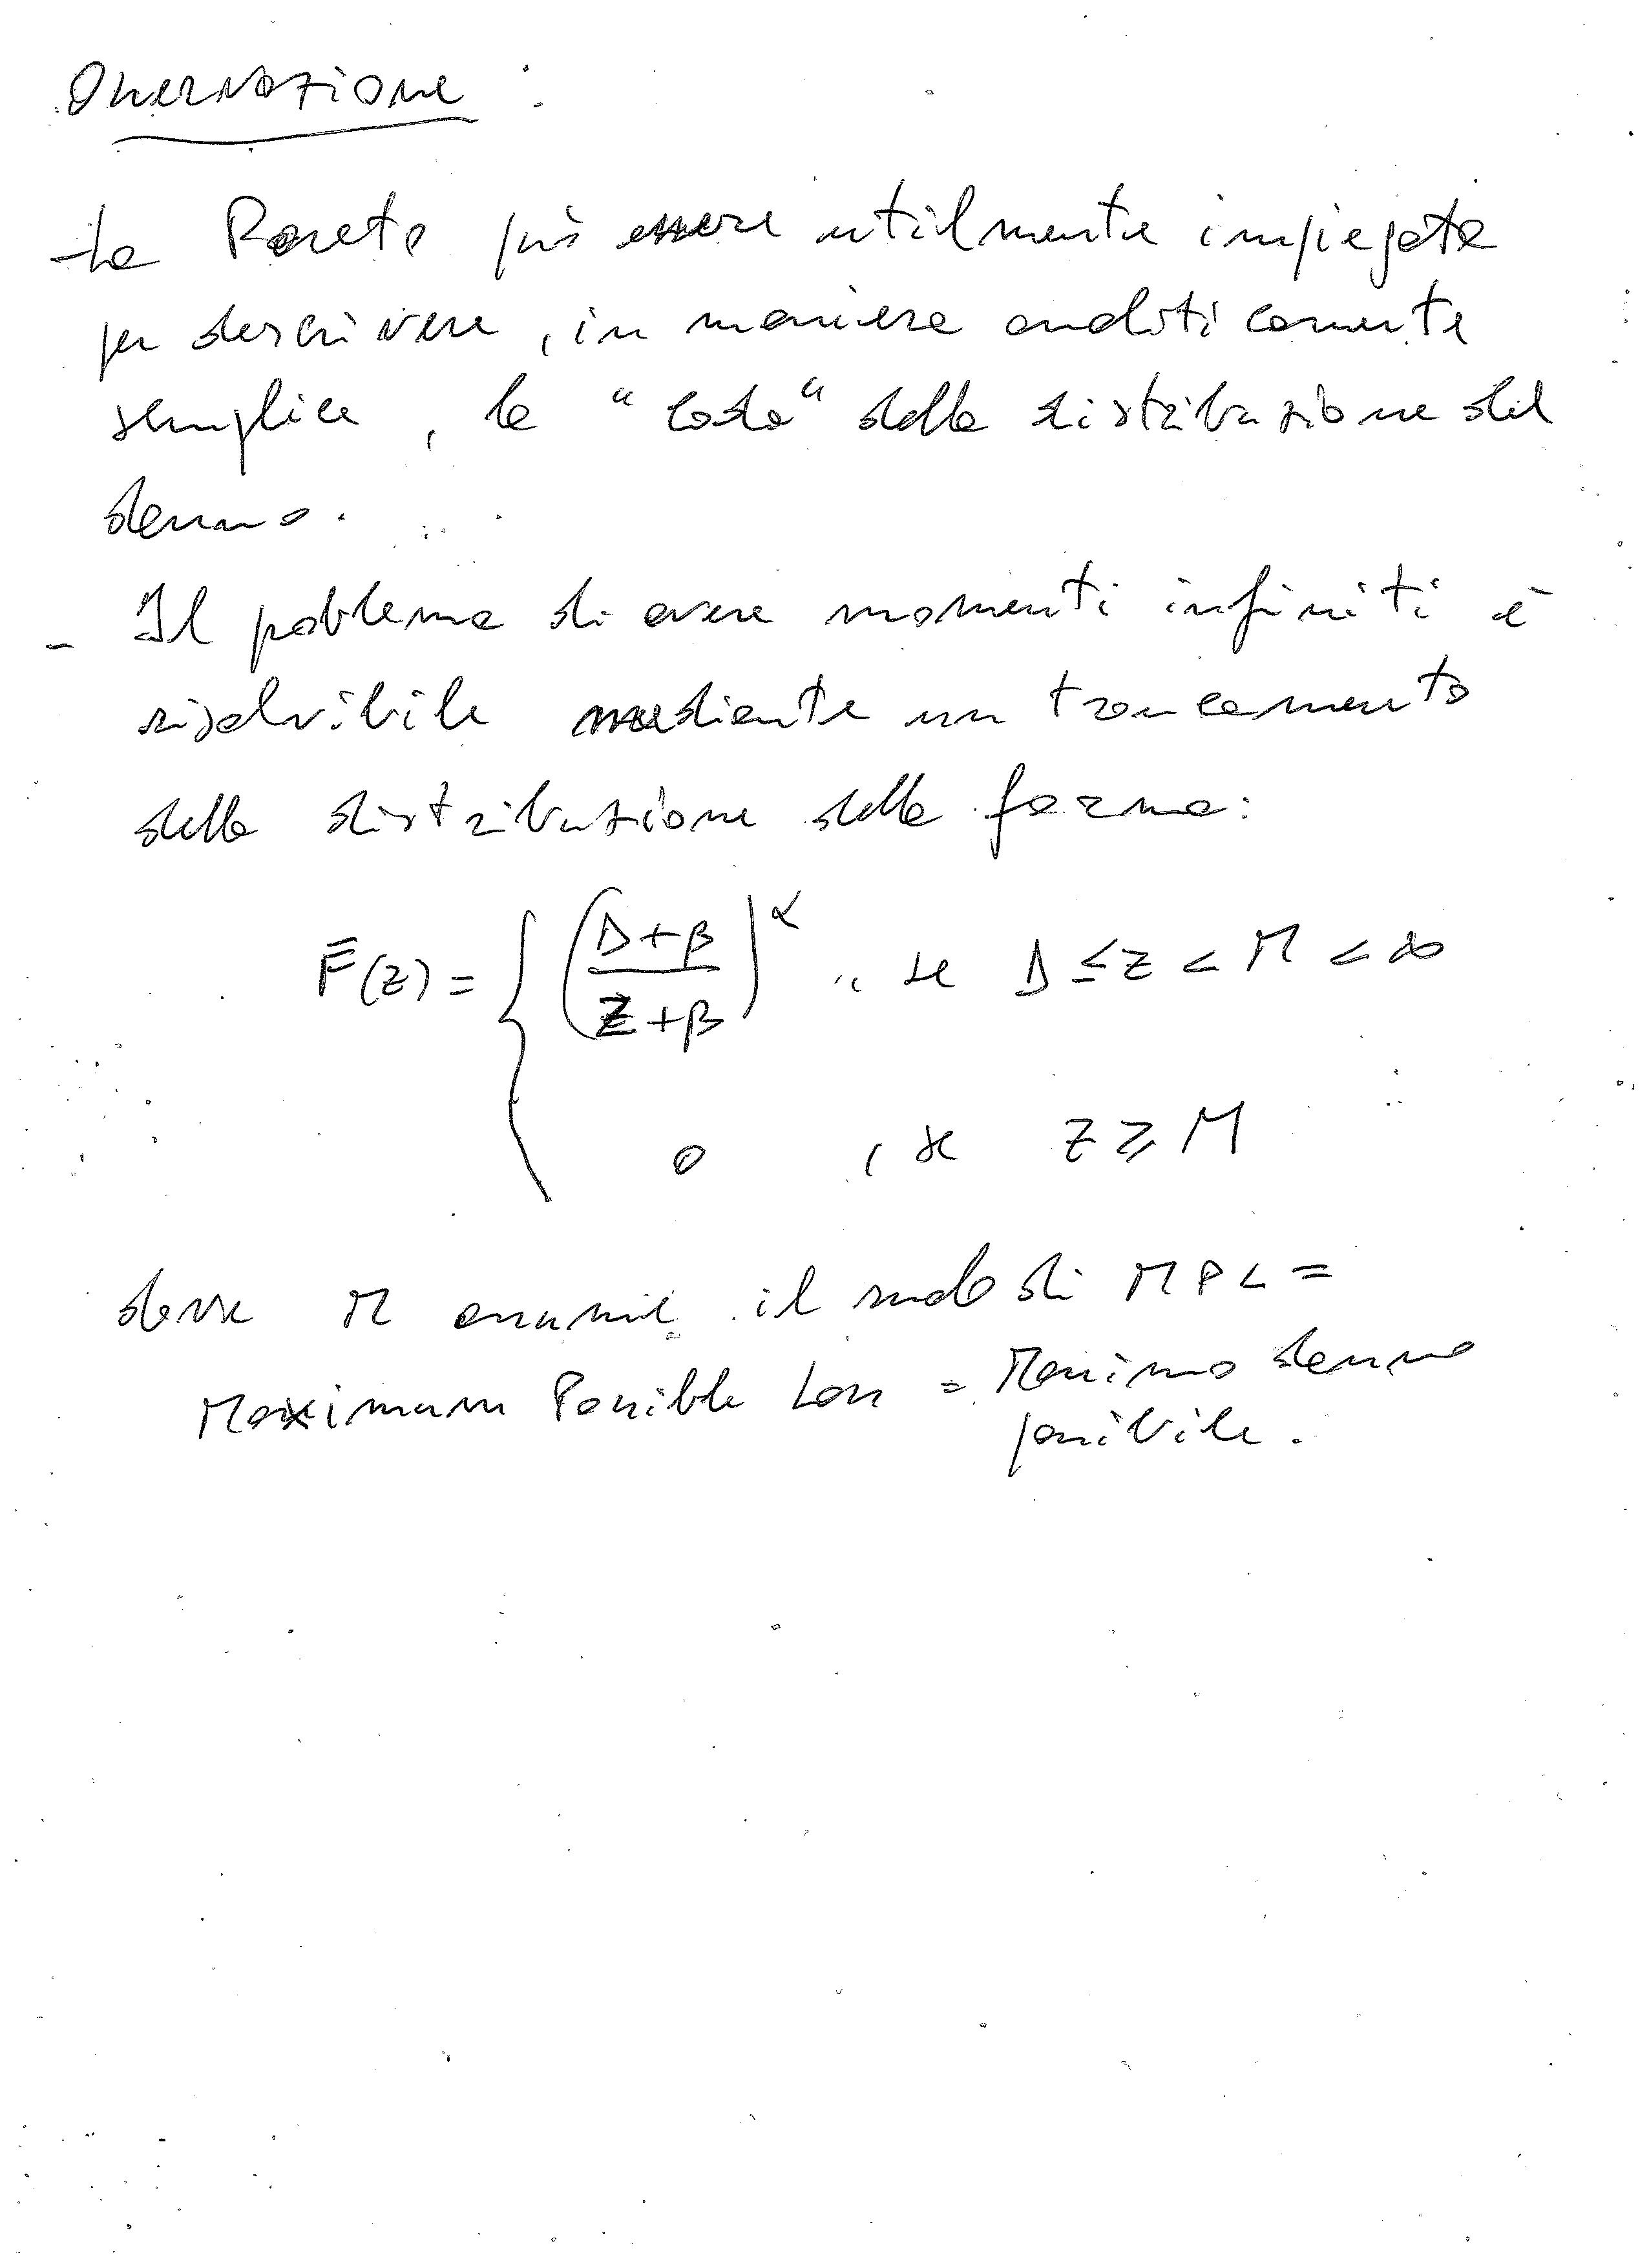 Osservazione :
- La Pareto può essere utilmente impiegata
per descrivere, in maniera analiticamente
semplice, la "coda" della distribuzione del
danno.
- Il problema di avere momenti infiniti è
risolvibile mediante un troncamento
della distribuzione della forma:
F̄(z) = { ((Δ+β)/(z+β))^α , se Δ ≤ z < M < ∞
0 , se z ≥ M
dove M assume il ruolo di MPL =
Maximum Possible Loss = Massimo danno
possibile.